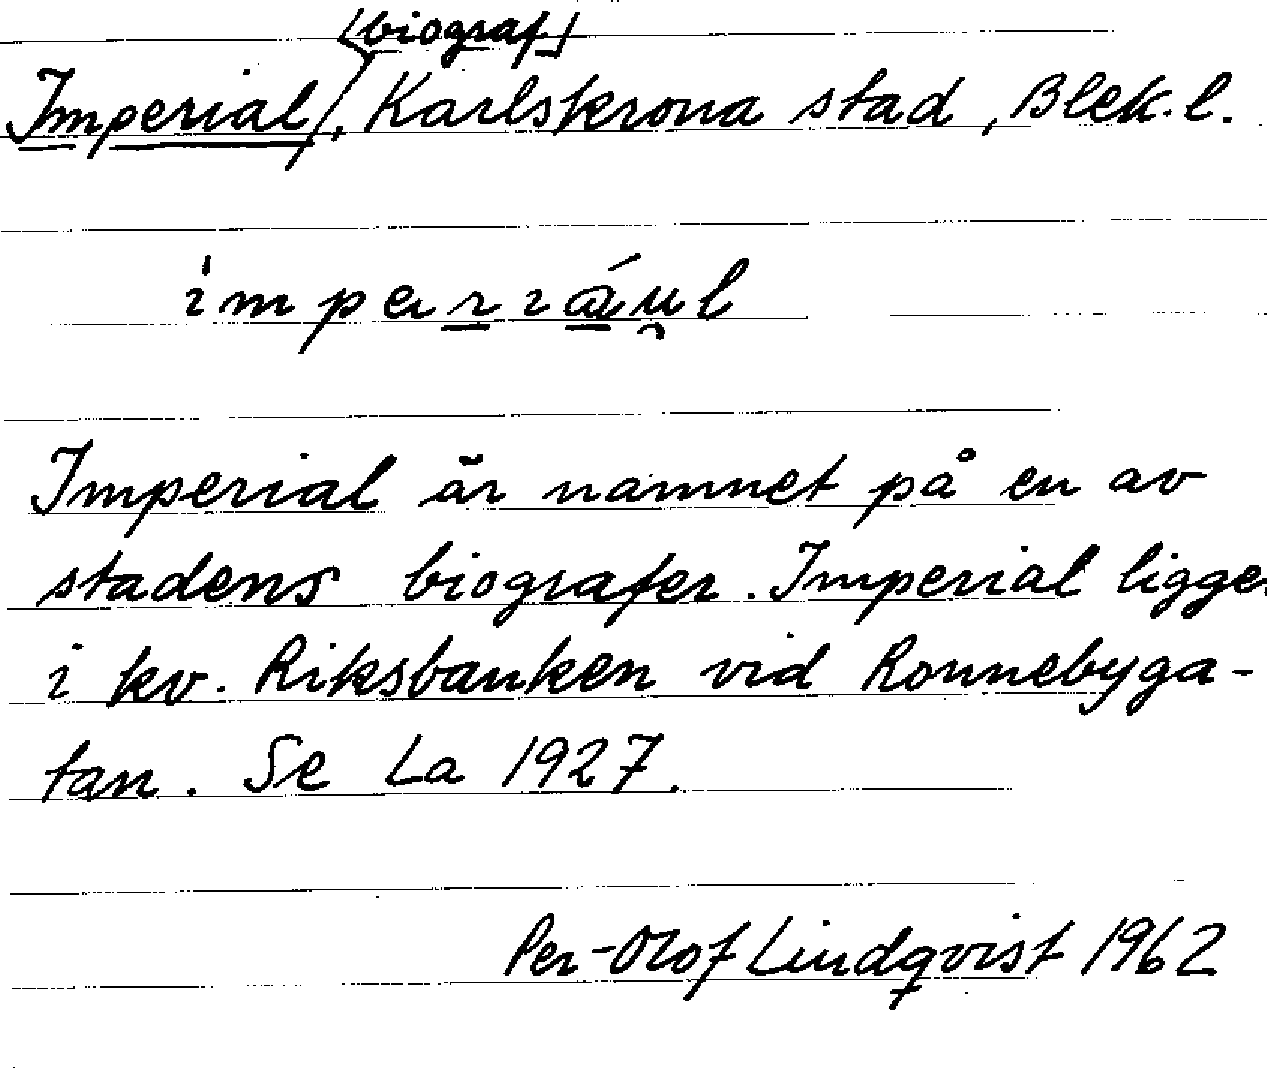 [biograf]
Imperial, Karlskrona stad, Blek.l.
Imperial är namnet på en av
stadens biografer. Imperial ligger
i kv. Riksbanken vid Ronnebyga-
tan. Se La 1927.
Per-Olof Lindqvist 1962